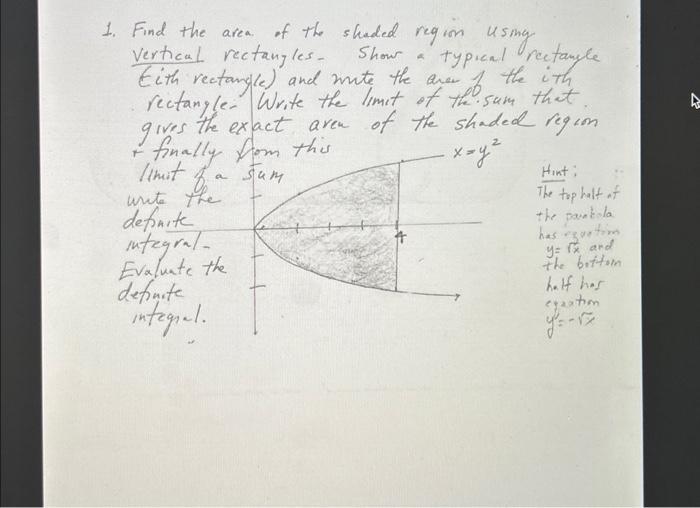 1. Find the area of the shaded region using
vertical rectangles. Show a typical rectangle
(ith rectangle) and write the area of the ith
rectangle. Write the limit of the sum that
gives the exact area of the shaded region
+ finally from this
limit of a sum
write the
definite
integral.
Evaluate the
definite
integral.
x=y²
4
Hint:
The top half of
the parabola
has equation
y=√x and
the bottom
half has
equation
y=-√x